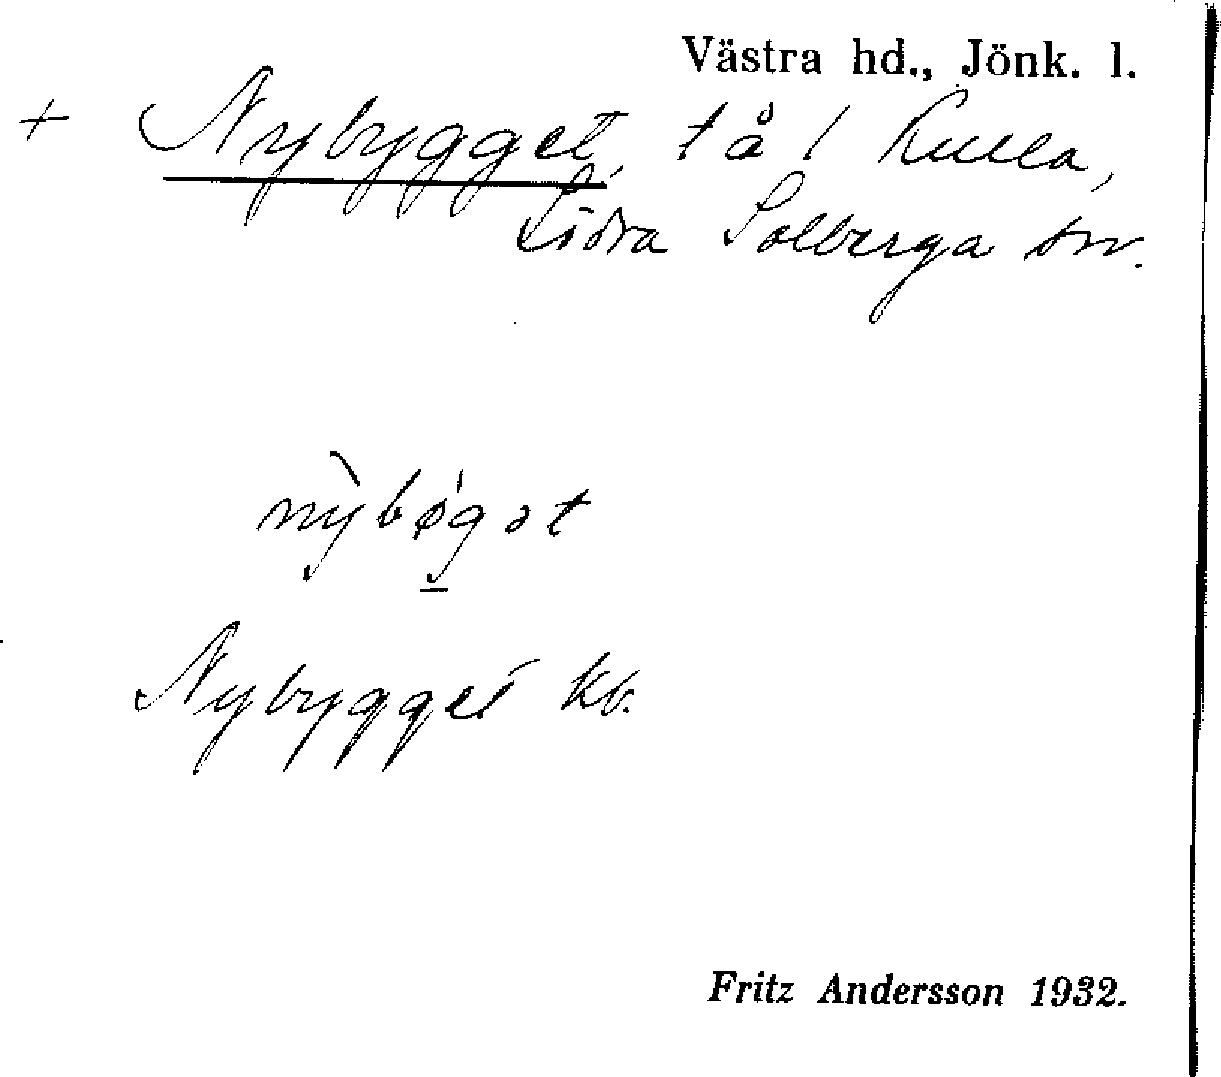 Västra hd., Jönk. l.
+ Nybygget, tå / Kulla,
Södra Solberga sn.
nỳbøgət
Nybygget kb.
Fritz Andersson 1932.